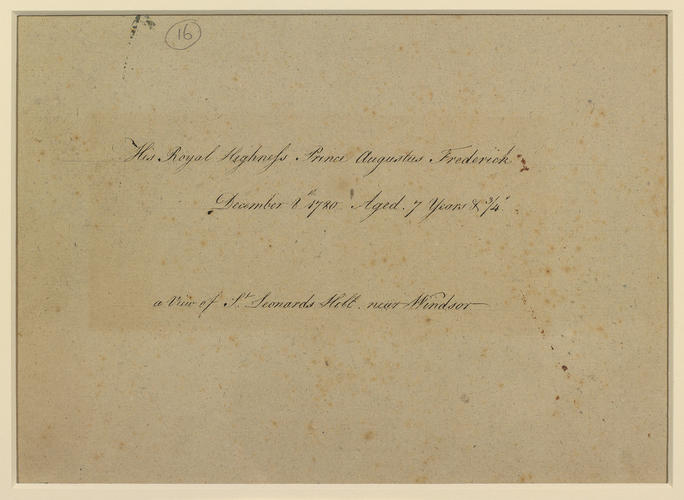 16
His Royal Highneſs Prince Augustus Frederick
December 8th 1780. Aged. 7 Years & 3/4.
a View of St. Leonards Hill. near Windsor